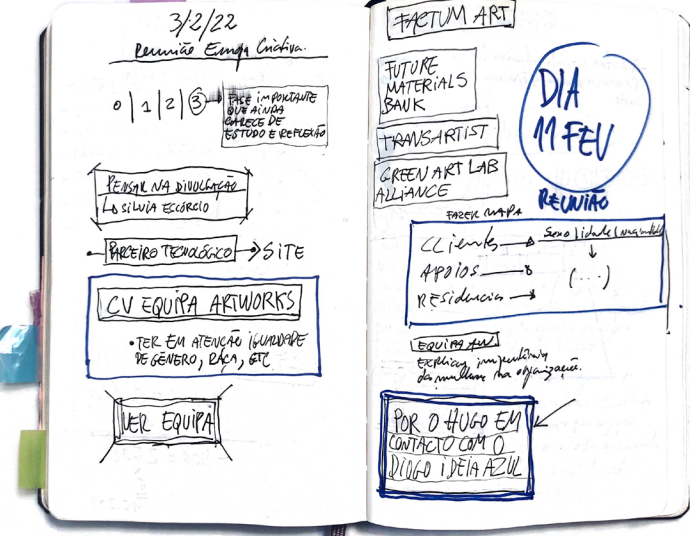 3/2/22
Reunião Europa Criativa.
0 | 1 | 2 | 3
FASE IMPORTANTE
QUE AINDA
CARECE DE
ESTUDO E REFLEXÃO
PENSAR NA DIVULGAÇÃO
SILVIA ESCÓRCIO
PARCEIRO TECNOLÓGICO → SITE
CV EQUIPA ARTWORKS
• TER EM ATENÇÃO IGUALDADE
DE GÉNERO, RAÇA, ETC
VER EQUIPA
FACTUM ART
FUTURE
MATERIALS
BANK
TRANSARTIST
GREEN ART LAB
ALLIANCE
DIA
11 FEV
REUNIÃO
FAZER MAPA
CLientes → Sexo | idade |
APOIOS → (...)
Residencias →
EQUIPA AW
Explicar
das mulheres na organização.
POR O HUGO EM
CONTACTO COM O
DIOGO IDEIA AZUL